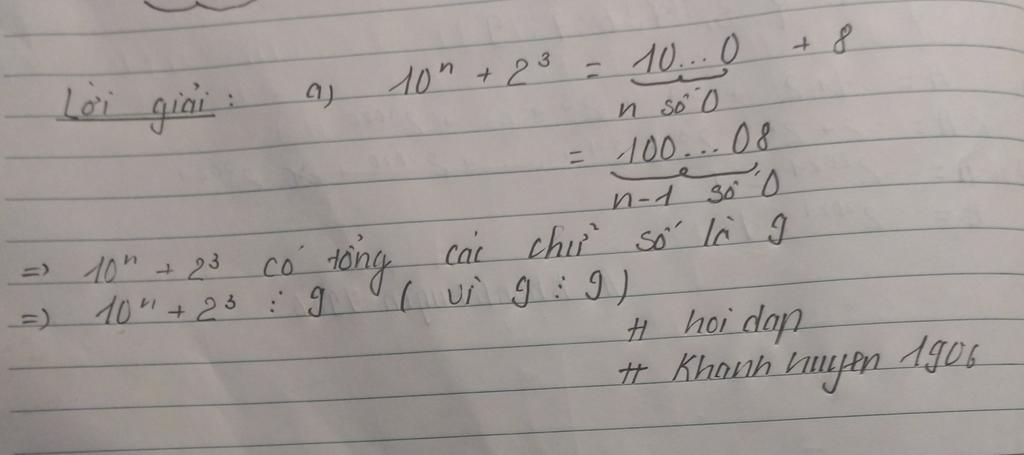 Lời giải: a) 10ⁿ + 2³ = 10...0 + 8
n số 0
= 100...08
n-1 số 0
=> 10ⁿ + 2³ có tổng các chữ số là 9
=> 10ⁿ + 2³ ⋮ 9 (vì 9 ⋮ 9)
# hoidap
# Khanhhuyen1906